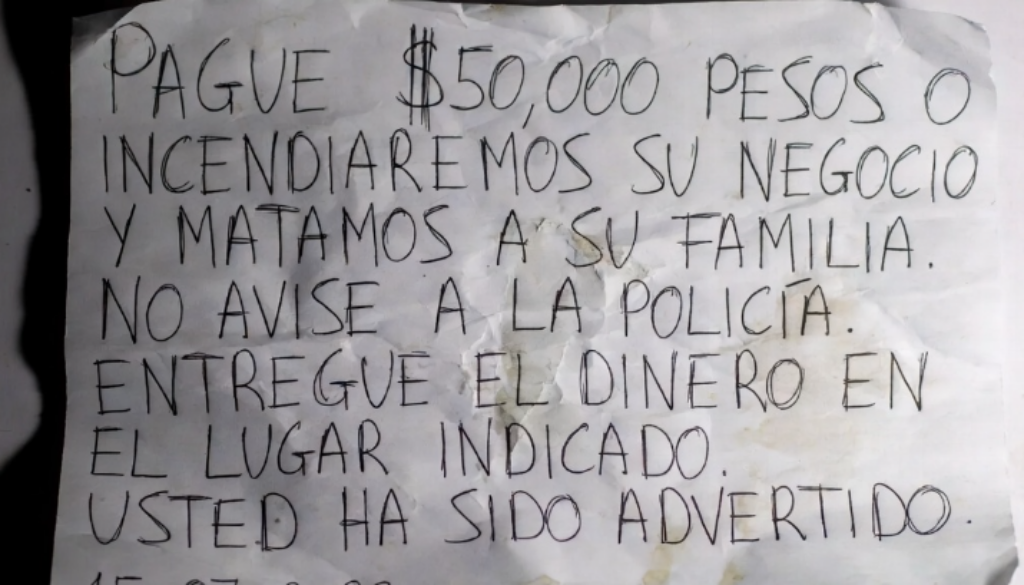 PAGUE $50,000 PESOS O
INCENDIAREMOS SU NEGOCIO
Y MATAMOS A SU FAMILIA.
NO AVISE A LA POLICÍA.
ENTREGUE EL DINERO EN
EL LUGAR INDICADO.
USTED HA SIDO ADVERTIDO.